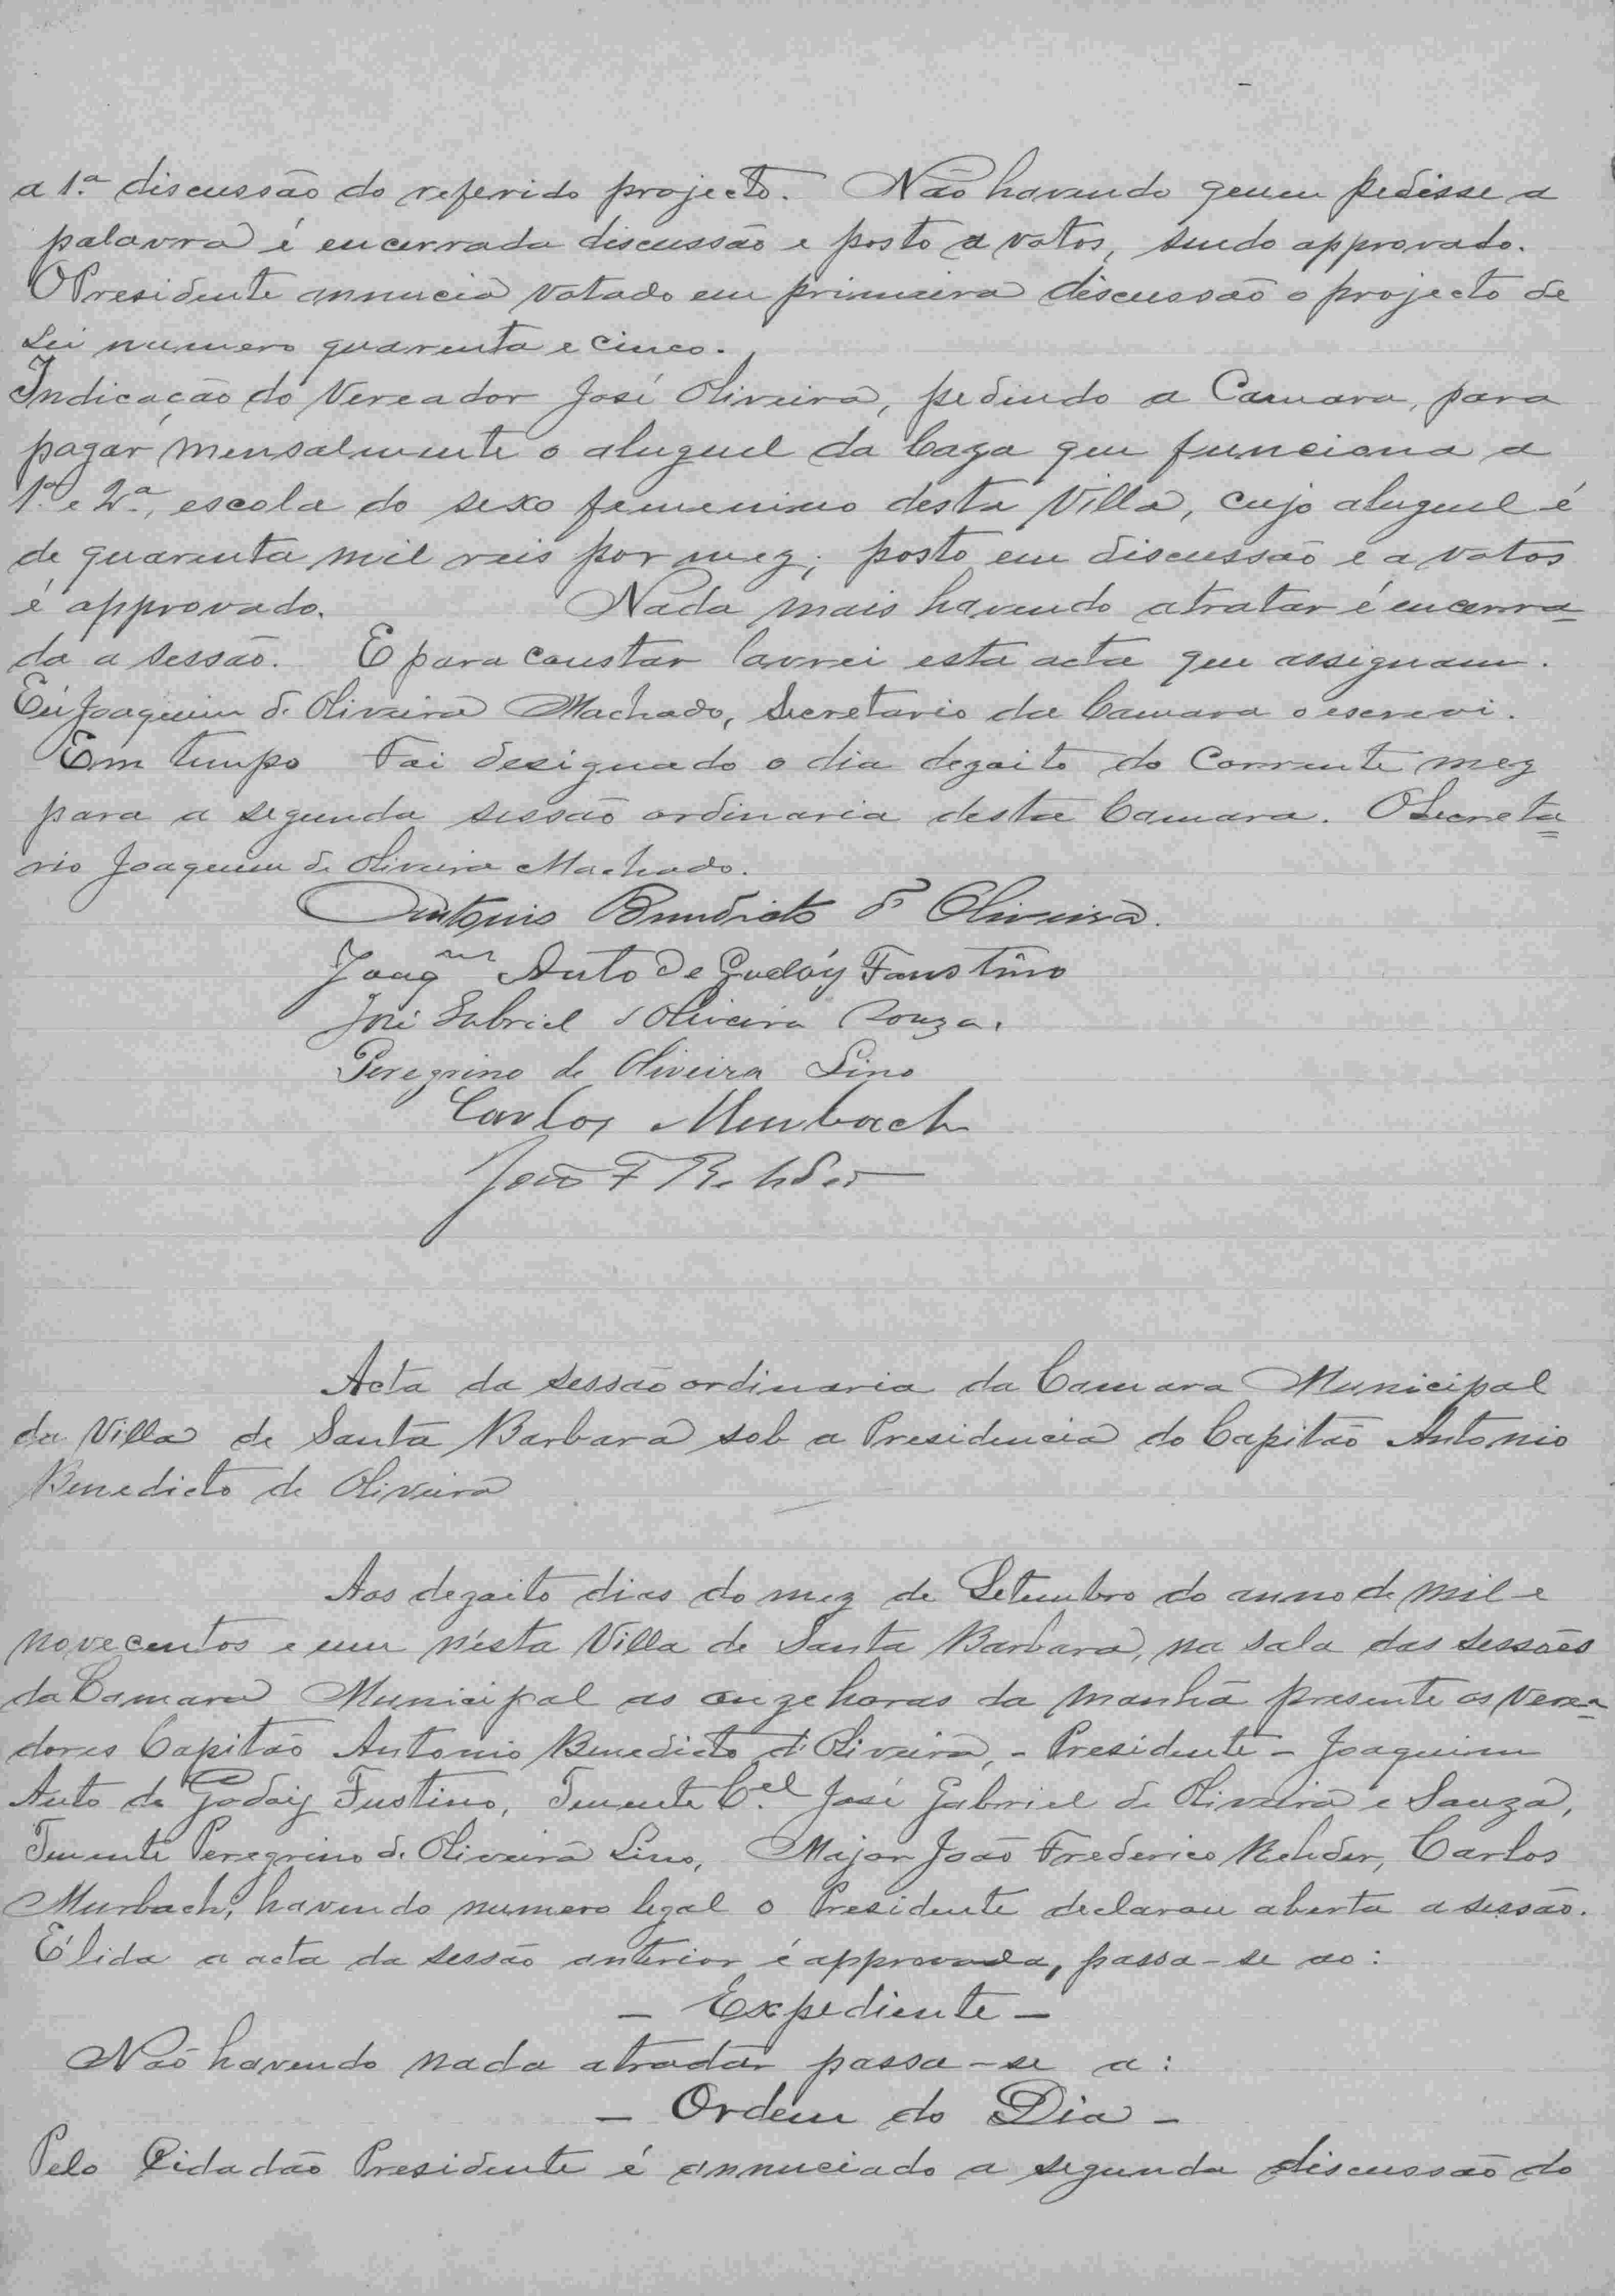 a 1.ª discussão do referido projecto. Não havendo quem pedisse a
palavra é encerrada discussão e posto a votos, sendo approvado.
O Presidente annucia votado em primeira discussão o projecto de
Lei numero quarenta e cinco.
Indicação do Vereador José Oliveira, pedindo a Camara, para
pagar mensalmente o aluguel da Caza que funciona a
1.ª e 2.ª, escola do sexo femenino desta Villa, cujo aluguel é
de quarenta mil reis por mez; posto em discussão e a votos
é approvado. Nada mais havendo atratar é encerra=
da a sessão. E para constar lavrei esta acta que assignam.
Eu Joaquim d. Oliveira Machado, Secretario da Camara o escrevi.
Em tempo Foi designado o dia dezoito do Corrente mez
para a segunda sessão ordinaria desta Camara. O Secreta=
rio Joaquim de Oliveira Machado.
Antonio Benedicto dº Oliveira.
Joaqm Auto De Godóy Faustino
José Gabriel d Oliveira Souza.
Peregrino de Oliveira Lino
Carlos Murbach
João F Rehder
Acta da sessão ordinaria da Camara Municipal
da Villa de Santa Barbara sob a Presidencia do Capitão Antonio
Benedicto de Oliveira
Aos dezoito dias do mez de Setembro do anno de mil e
novecentos e um n'esta Villa de Santa Barbara, na sala das sessões
da Camara Municipal as onze horas da manhã presente os verea=
dores Capitão Antonio Benedicto d'Oliveira, - Presidente - Joaquim
Auto de Godoy Fustino, Tenente Cel. José Gabriel de Oliveira e Souza,
Tenente Peregrino d. Oliveira Lino, Major João Frederico Rehder, Carlos
Murbach, havendo numero legal o Presidente declarou aberta a sessão.
É lida a acta da sessão anterior é approvada, passa-se ao:
- Expediente -
Não havendo nada atradar passa-se a:
- Ordem do Dia -
Pelo Cidadão Presidente é annuciado a segunda discussão do